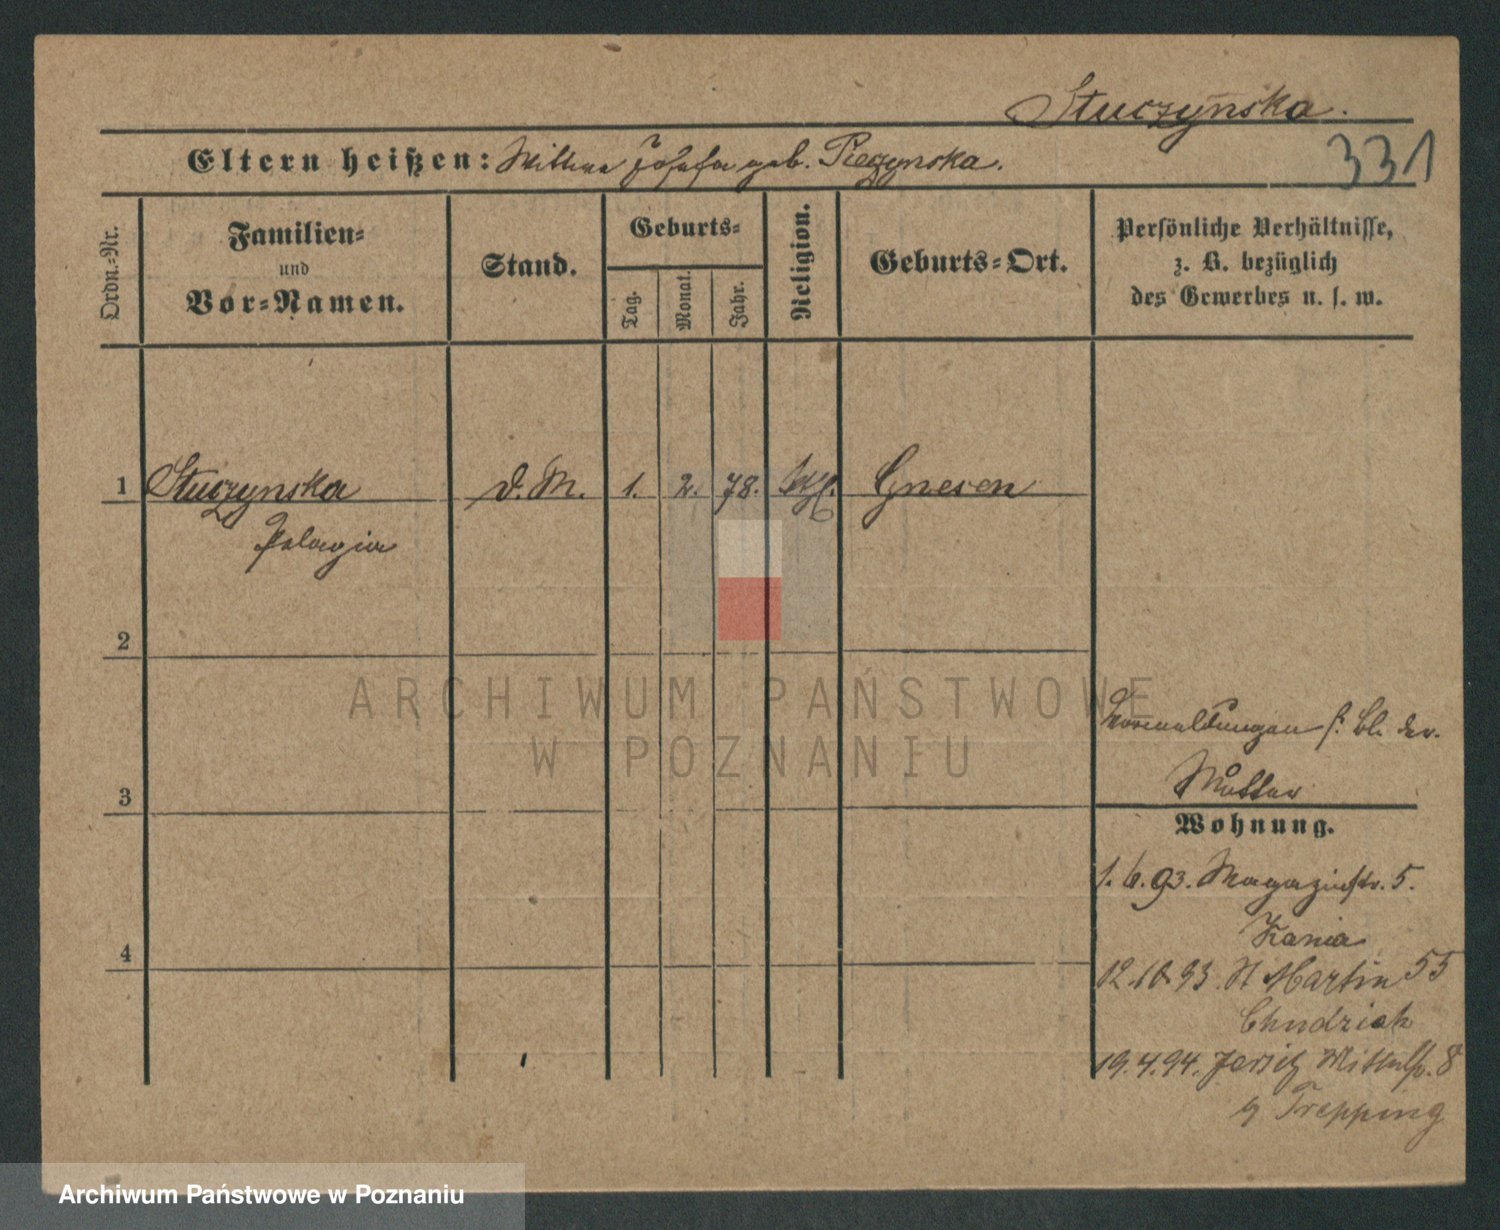 Stuczyńska.
Eltern heißen: Wittwe Josefa geb. Pieczynska.
331
Ordn.-Nr.
Familien-
und
Vor-Namen.
Stand.
Geburts-
Tag.
Monat.
Jahr.
Religion.
Geburts-Ort.
Persönliche Verhältnisse,
z. B. bezüglich
des Gewerbes u. s. w.
1 Stuczynska d. M. 1. 2. 78. kath. Gnesen
Pelagia
2
3
4
s. Bl. der
Mutter
Wohnung.
1.6.93. Magazinstr. 5.
Kania
12.10.93. St Martin 55
Chudziak
19.4.94. Jersitz Mittelstr. 8
b/ Trepping
ARCHIWUM PAŃSTWOWE
W POZNANIU
Archiwum Państwowe w Poznaniu